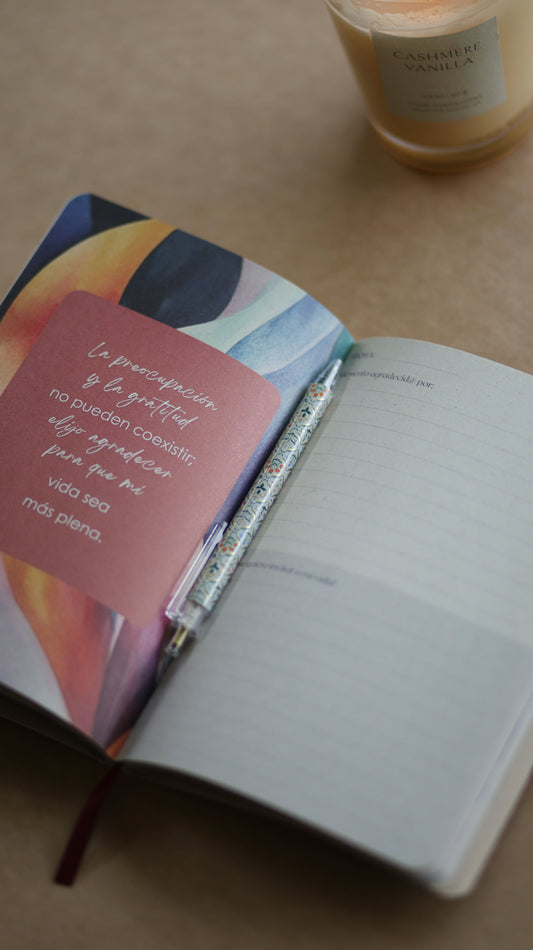 CASHMERE
VANILLA
La preocupación
y la gratitud
no pueden coexistir;
elijo agradecer
para que mi
vida sea
más plena.
agradecid@ por: